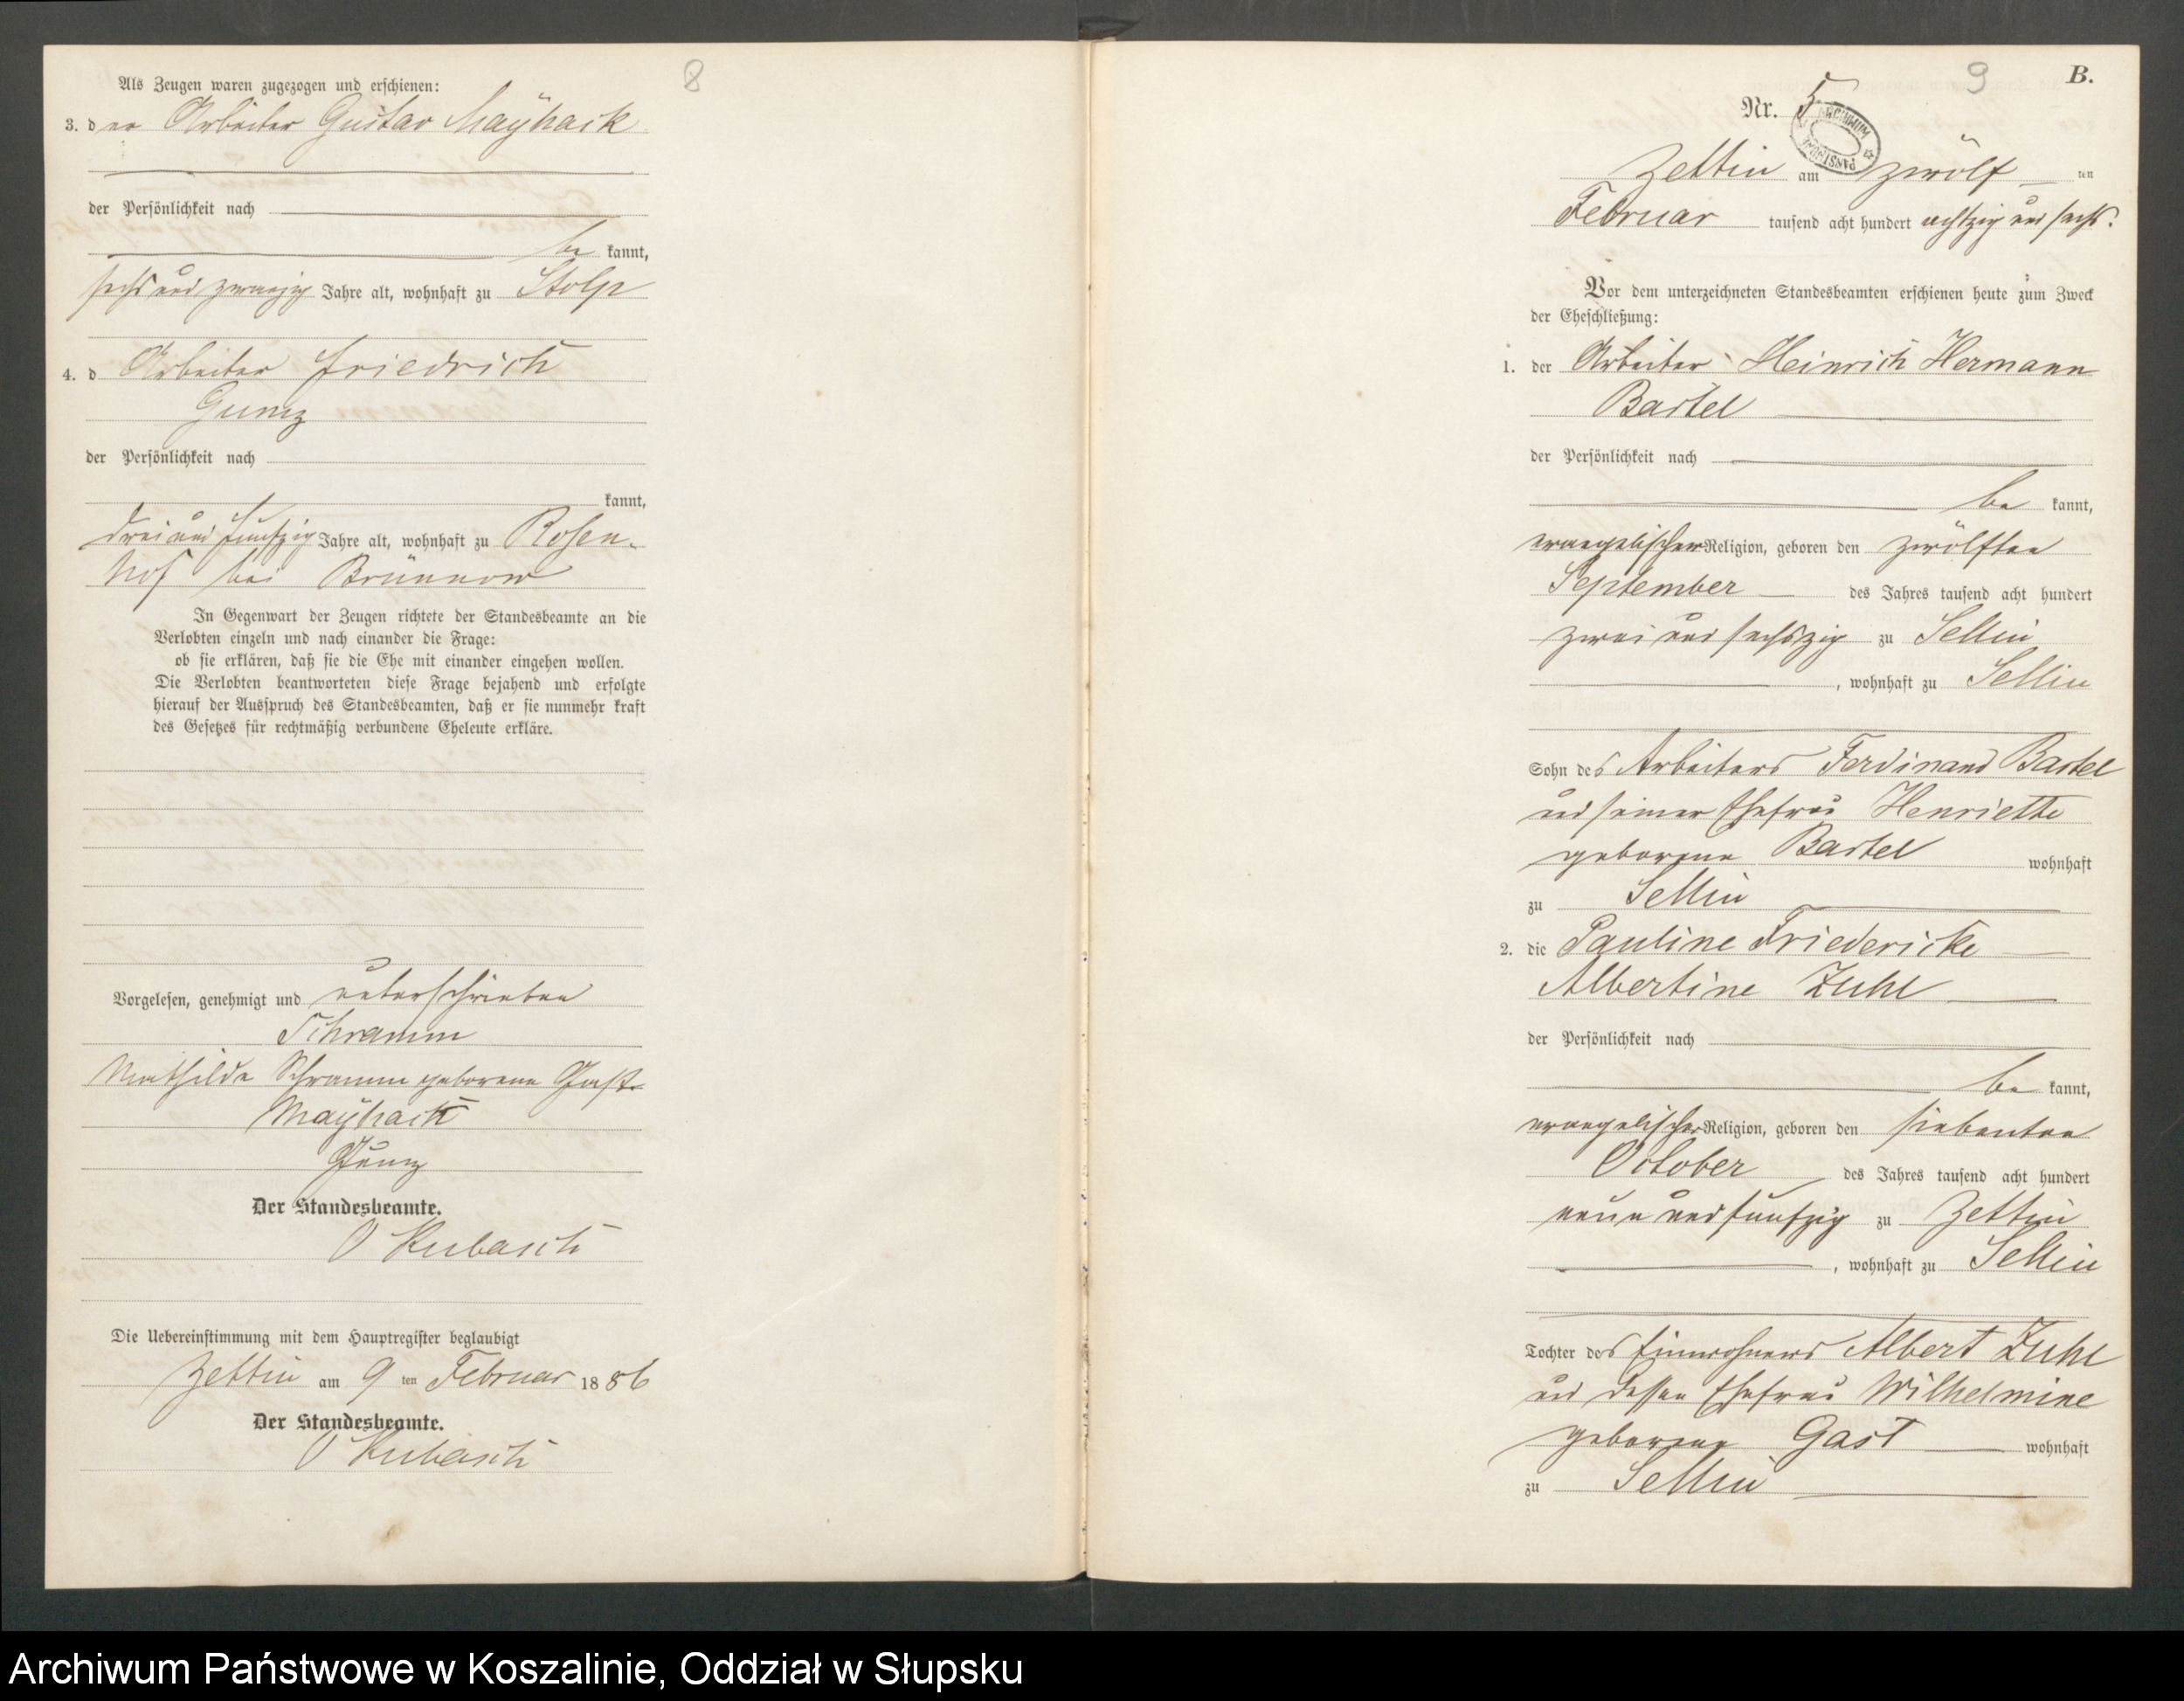 8
Als Zeugen waren zugezogen und erschienen:
3. der Arbeiter Gustav Mayhack
der Persönlichkeit nach
be kannt,
sechs und zwanzig Jahre alt, wohnhaft zu Stolp
4. d Arbeiter Friedrich
Gumz
der Persönlichkeit nach
kannt,
drei und fünfzig Jahre alt, wohnhaft zu Rosen-
hof bei Brünnow
In Gegenwart der Zeugen richtete der Standesbeamte an die
Verlobten einzeln und nach einander die Frage:
ob sie erklären, daß sie die Ehe mit einander eingehen wollen.
Die Verlobten beantworteten diese Frage bejahend und erfolgte
hierauf der Ausspruch des Standesbeamten, daß er sie nunmehr kraft
des Gesetzes für rechtmäßig verbundene Eheleute erkläre.
Vorgelesen, genehmigt und unterschrieben
Schramm
Mathilde Schramm geborene Gast
Mayhack
Gumz
Der Standesbeamte.
O Kubasch
Die Uebereinstimmung mit dem Hauptregister beglaubigt
Zettin am 9 ten Februar 1886
Der Standesbeamte.
O Kubasch
9
B.
Nr. 5
ARCHIWUM PAŃSTWOWE
Zettin am zwölf ten
Februar tausend acht hundert achtzig und sechs.
Vor dem unterzeichneten Standesbeamten erschienen heute zum Zweck
der Eheschließung:
1. der Arbeiter Heinrich Hermann
Bartel
der Persönlichkeit nach
be kannt,
evangelischer Religion, geboren den zwölften
September des Jahres tausend acht hundert
zwei und sechszig zu Sellin
, wohnhaft zu Sellin
Sohn des Arbeiters Ferdinand Bartel
und seiner Ehefrau Henriette
geborene Bartel wohnhaft
zu Sellin
2. die Pauline Friedericke
Albertine Zuhl
der Persönlichkeit nach
be kannt,
evangelischer Religion, geboren den siebenten
October des Jahres tausend acht hundert
neun und fünfzig zu Zettin
, wohnhaft zu Sellin
Tochter des Einwohners Albert Zuhl
und dessen Ehefrau Wilhelmine
geborene Gast wohnhaft
zu Sellin
Archiwum Państwowe w Koszalinie, Oddział w Słupsku